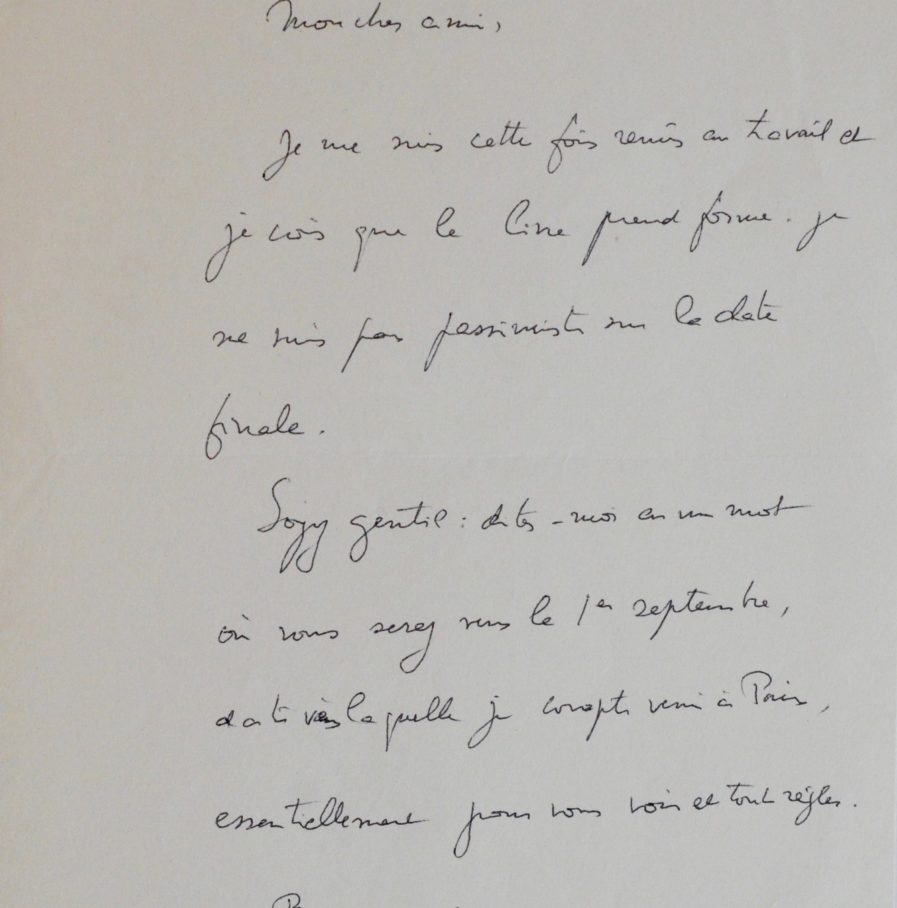 Mon cher ami,
Je me suis cette fois remis au travail et
je crois que le livre prend forme. Je
ne suis pas pessimiste sur la date
finale.
Soyez gentil : dites-moi en un mot
où vous serez vers le 1er septembre,
date vers laquelle je compte venir à Paris,
essentiellement pour vous voir et tout régler.